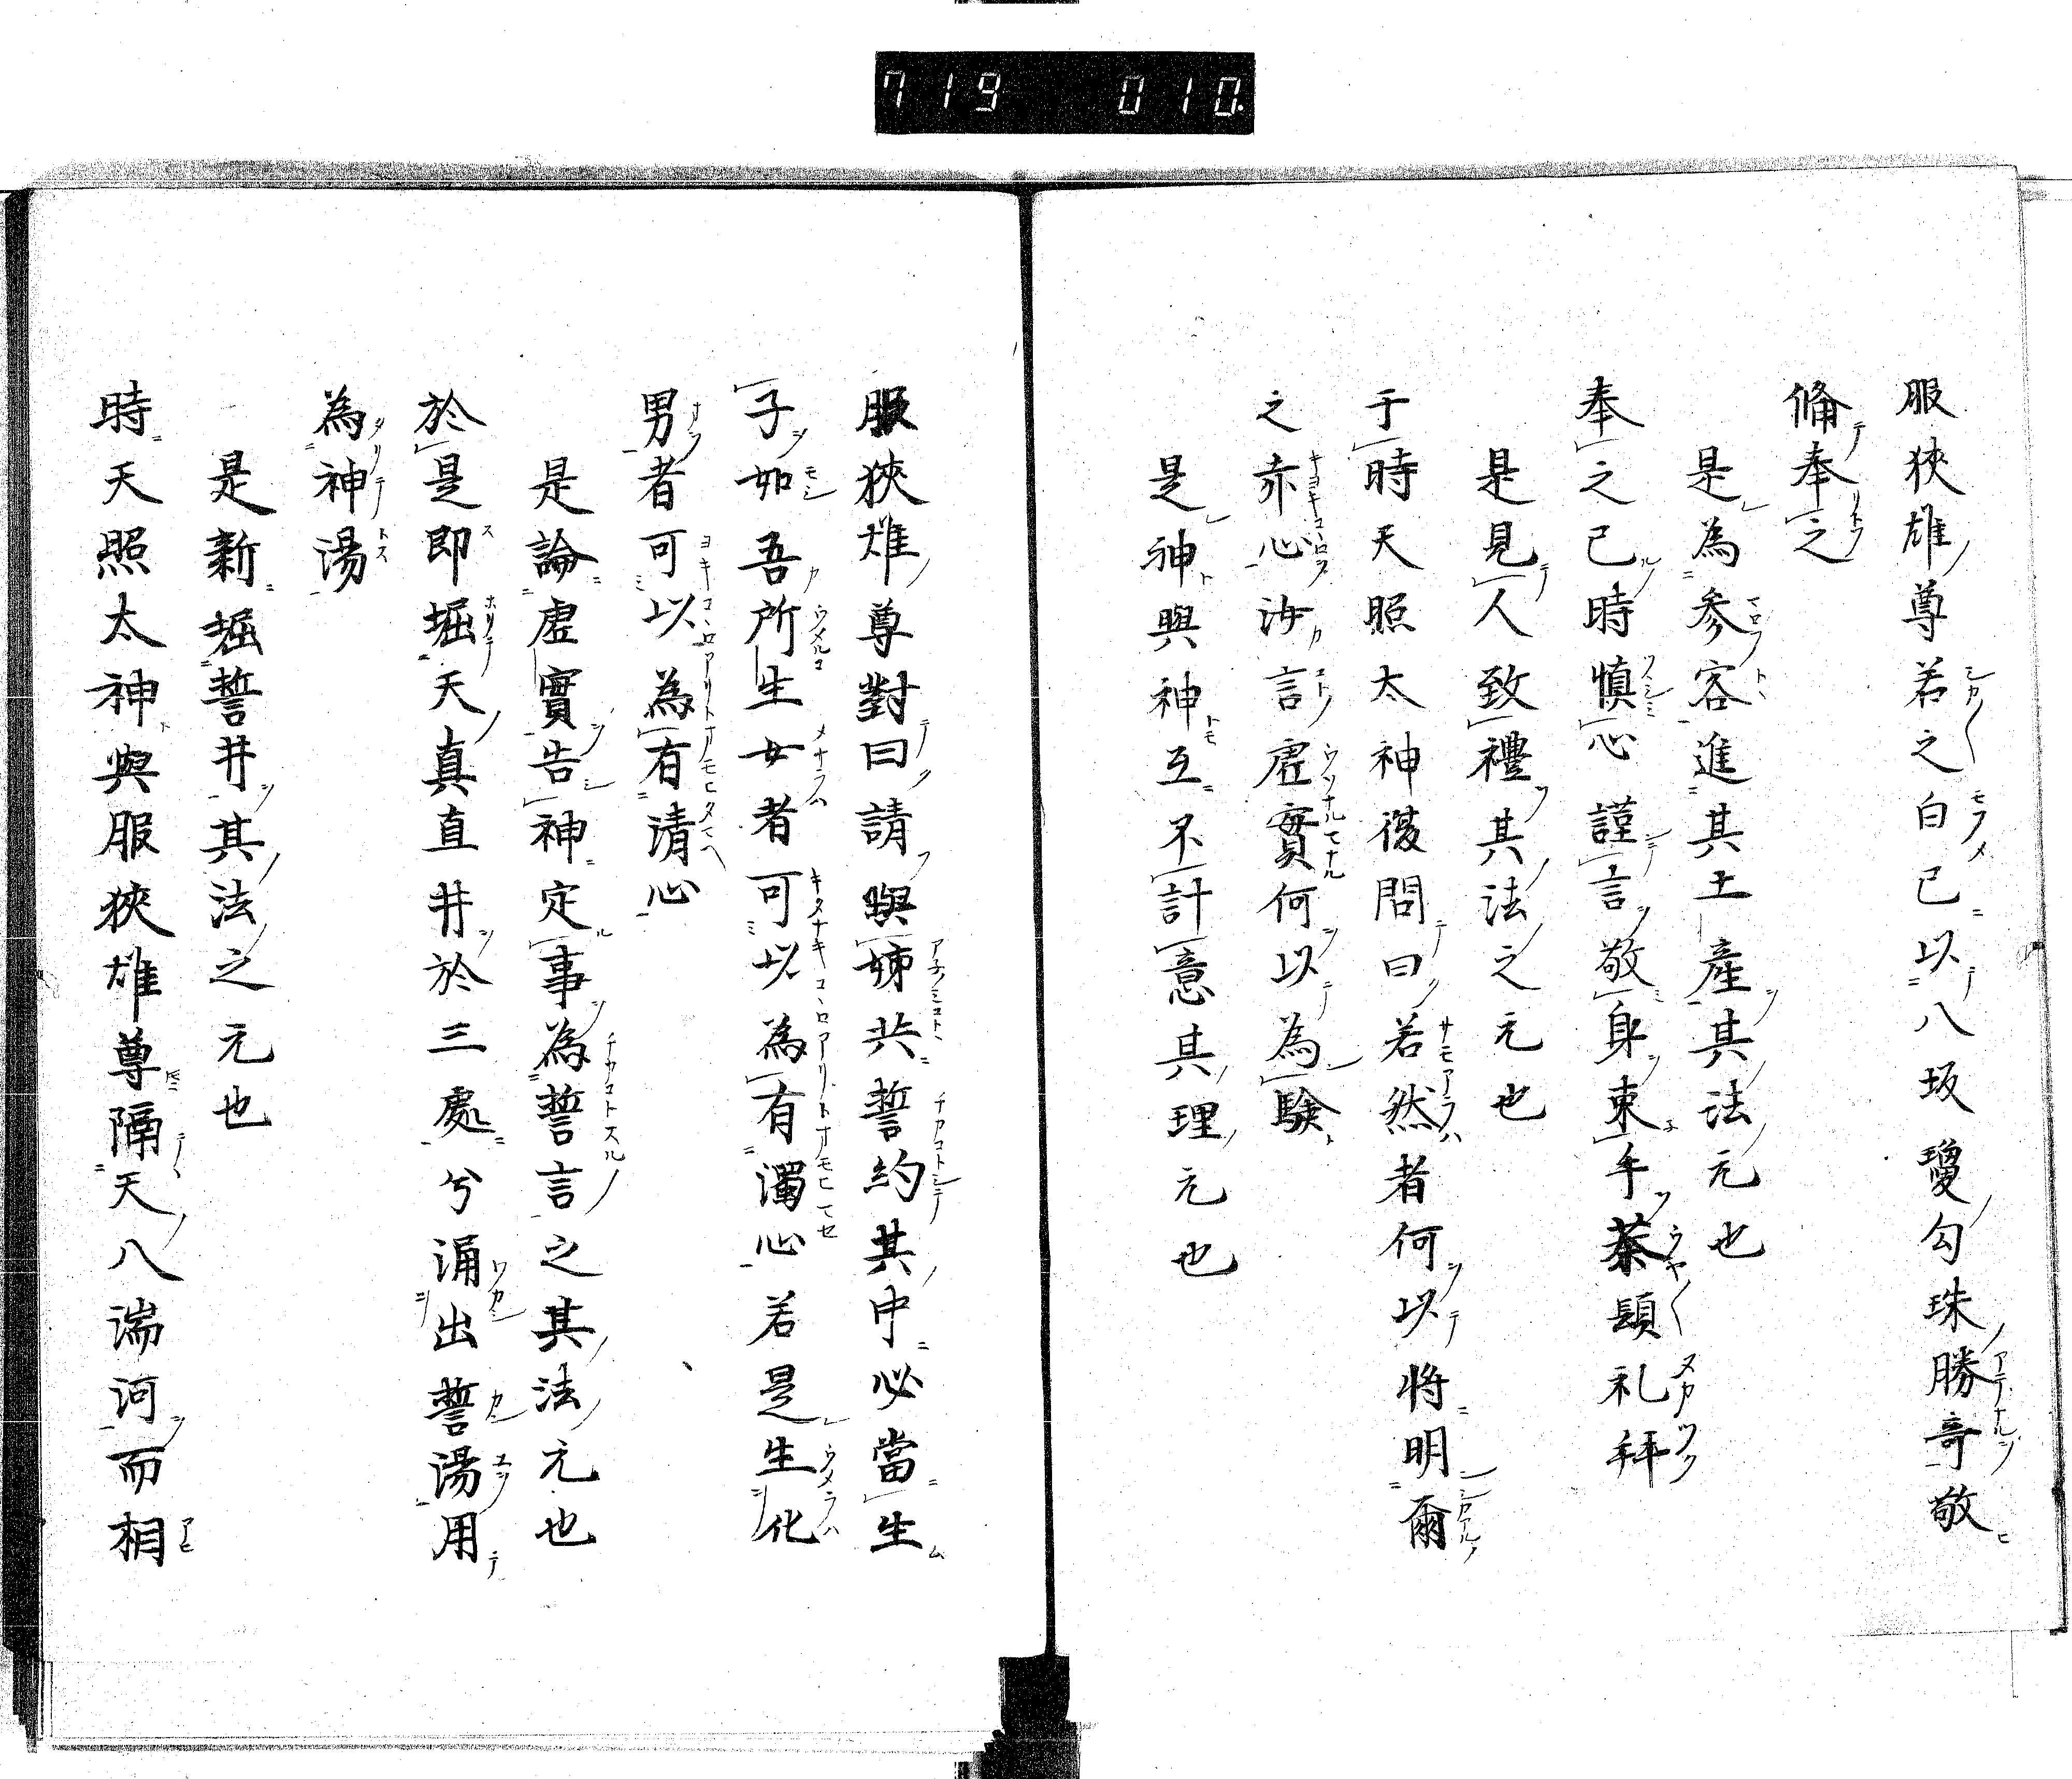 719 010.
服狹雄尊若之白已以八坂瓊勾珠勝竒敬
俻奉之
是為参容進其土產其法元也
奉之已時慎心謹言敬身束手恭頓礼拜
是見人致禮其法之元也
于時天照太神復問曰若然者何以将明爾
之赤心汝言虚實何以為験
是神與神互不計意其理元也
服狹雄尊對曰請與姉共誓約其中必當生
子如吾所生女者可以為有濁心若是生化
男者可以為有清心
是論虚實告神定事為誓言之其法元也
於是即堀天真直井於三處兮涌出誓湯用
為神湯
是新堀誓井其法之元也
時天照太神與服狹雄尊隔天八湍河而相